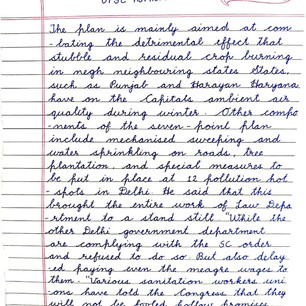 The plan is mainly aimed at com
-bating the detrimental effect that
stubble and residual crop burning
in negh neighbouring states States,
such as Punjab and Harayan Haryana
have on the Capitals ambient air
quality during winter. Other compo
-ments of the seven-point plan
include mechanised sweeping and
water sprinkling on roads, tree
plantation, and special measures to
be put in place at 12 pollution hot
-spots in Delhi. He said that this
brought the entire work of Law Depa
-rtment to a stand still "While the
other Delhi government department
are complying with the SC order
and refused to do so. But also delay
-ed paying even the meagre wages to
them. "Various sanitation workers uni
ons have told the Congress that they
will not be fooled hollow promises